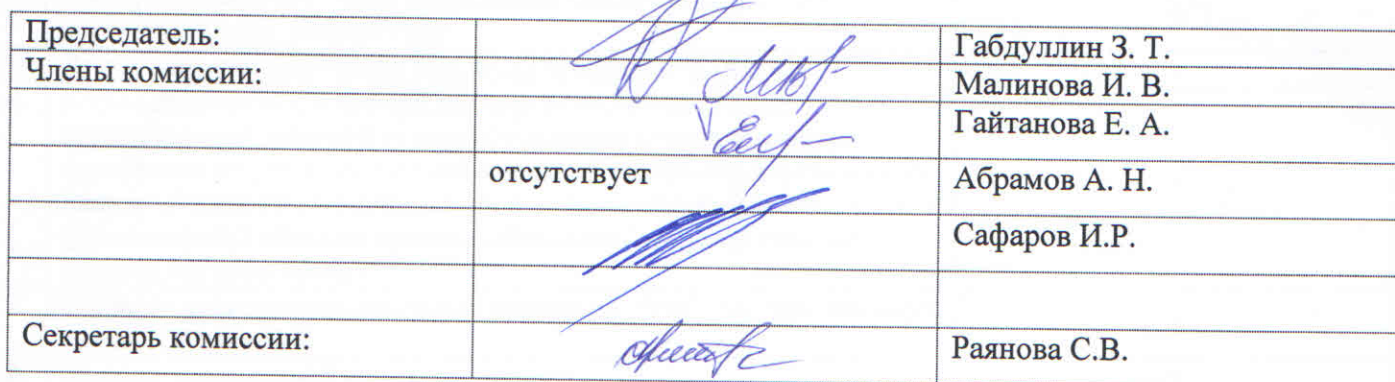 Председатель: Габдуллин З. Т.
Члены комиссии: Малинова И. В.
Гайтанова Е. А.
отсутствует Абрамов А. Н.
Сафаров И.Р.
Секретарь комиссии: Раянова С.В.